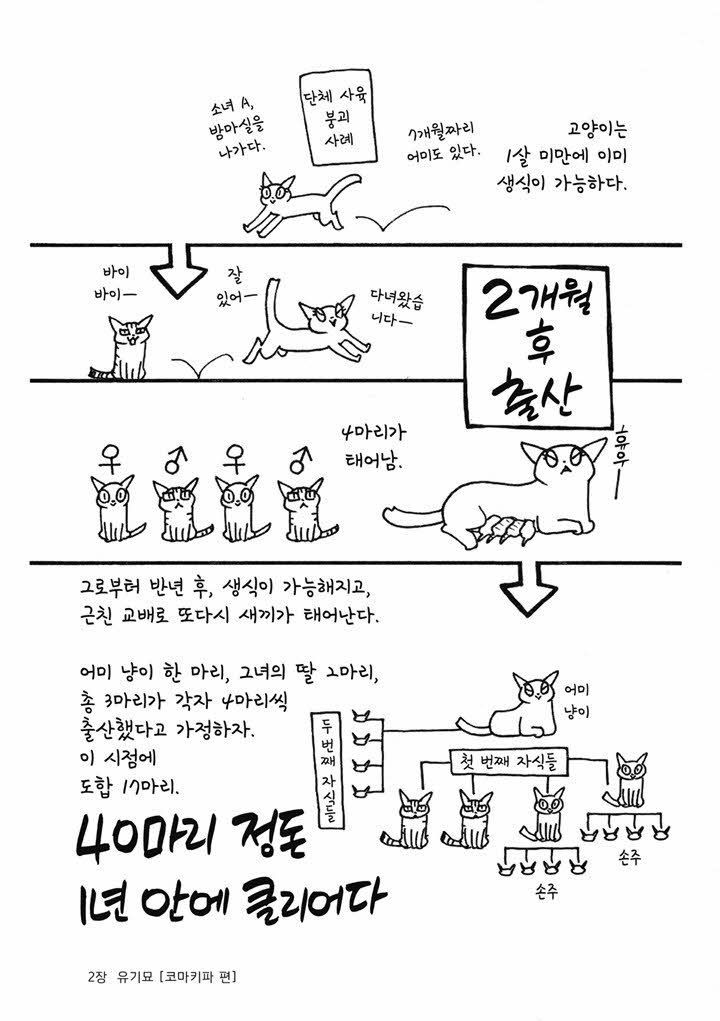 단체 사육
붕괴
사례
소녀 A,
밤마실을
나가다.
7개월짜리
어미도 있다.
고양이는
1살 미만에 이미
생식이 가능하다.
바이
바이—
잘
있어—
다녀왔습
니다—
2개월
후
출산
4마리가
태어남.
휴우—
♀ ♂ ♀ ♂
그로부터 반년 후, 생식이 가능해지고,
근친 교배로 또다시 새끼가 태어난다.
어미 냥이 한 마리, 그녀의 딸 2마리,
총 3마리가 각자 4마리씩
출산했다고 가정하자.
이 시점에
도합 17마리.
어미
냥이
두 번째 자식들
첫 번째 자식들
손주
손주
40마리 정돈
1년 안에 클리어다
2장 유기묘 [코마키파 편]